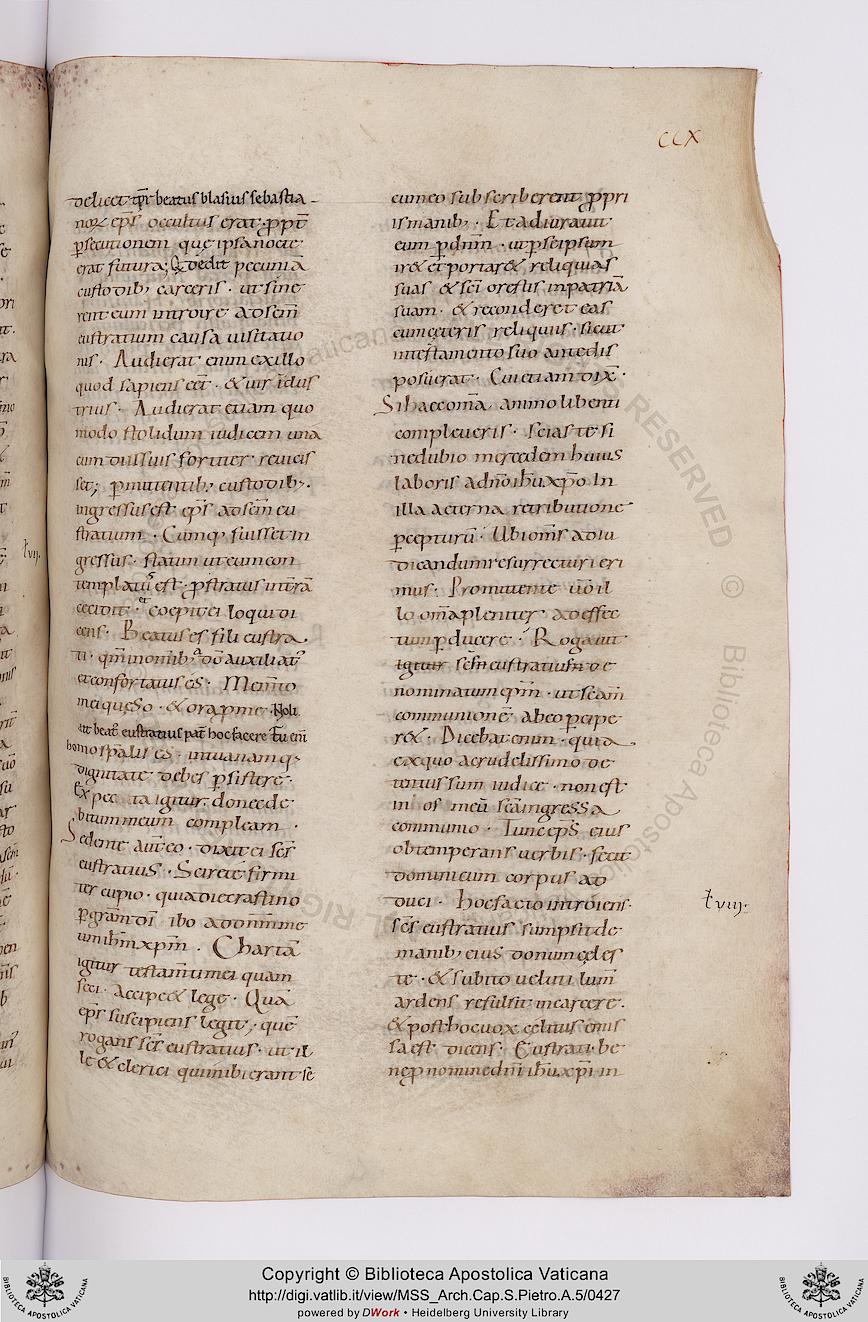 CCX
delicet tp̄r beatus blasius sebastia-
noꝝ ep̄s occultus erat ꝓpt̄
ꝑsecutionem quę ipsa nocte
erat futura; Et dedit pecuniā
custodib; carceris · ut sine
rent eum introire ad sc̄m
eustratium causa uisitatio
nis · Audierat enim ex illo
quod sapiens eēt · & uir
trius · Audierat etiam quo
modo stolidum iudicem una
cum diis suis fortiter reuicis
set; ꝑmittentib; custodib; ·
ingressus est ep̄s ad sc̄m eu
stratium · Cumq; fuisset in
gressus · statim ut eum con
templatus est · ꝓstratus in trā
cecidit · et coepit ei loqui di
cens · Beatus es fili eustra
ti · qm̄ in omnib; d̄s auxiliat᷒
et confortatus es · Mem̄to
mei quęso · & ora ꝓ me · Noli
ait beat᷒ eustratius pat̄ hoc facere tu eni
homo spalis es · in tua namq;
dignitate debes ꝑsistere ·
Expecta igitur donec de
bitum meum compleam ·
Sedente aut̄ eo · dixit ei sc̄s
eustratius · Scire te firmi
ter cupio · quia die crastino
ꝑ gr̄am dī ibo ad dominū
ih̄m xp̄m · Chartā
igitur testam̄ti mei quam
feci · Accipe & lege · Quā
ep̄s suscipiens legit; quē
rogans sc̄s eustratius · ut il
le & clerici qui inibi erant sē
cum eo subscriberent ꝓpri
is manib; · Et adiurauit
eum ꝑ dn̄m · ut ꝑ se ipsum
ir& et portar& reliquias
suas & sc̄i orestis in patriā
suam · & reconderet eas
cum ceteris reliquiis · sicut
in testamento suo ante dis
posuerat · Cui etiam dix̄ ·
Si hacc om̄a animo libenti
compleueris · Scias te si
ne dubio mercedem huius
laboris a dn̄o ih̄u xp̄o In
illa aeterna retributione
ꝑcepturū · Ubi om̄s ad iu
dicandum resurrecturi eri
mus · Promittente u̅o il
lo om̄a pleniter ad effec
tum ꝑducere · Rogauit
igitur sc̄s eustratius de
nominatum ep̄m · ut sc̄am
communionē ab eo ꝑcipe
r& · Dicebat enim · quia
ex quo a crudelissimo de
tentus sum iudice · non est
in os meū sc̄a ingressa
communio · Tunc ep̄s eius
obtemperans uerbis · fecit
dominicum corpus ad
duci · Hoc facto introiens ·
sc̄s eustratius sumpsit de
manib; eius donum cęles
te · & subito ueluti lum̄
ardens refulsit in carcere ·
& post hoc uox cęlitus emis
sa est dicens · Eustrati · be
ne ꝓ nomine dn̄i ih̄u xp̄i in
ł vii ·
ł viii ·
Copyright © Biblioteca Apostolica Vaticana
http://digi.vatlib.it/view/MSS_Arch.Cap.S.Pietro.A.5/0427
powered by DWork • Heidelberg University Library